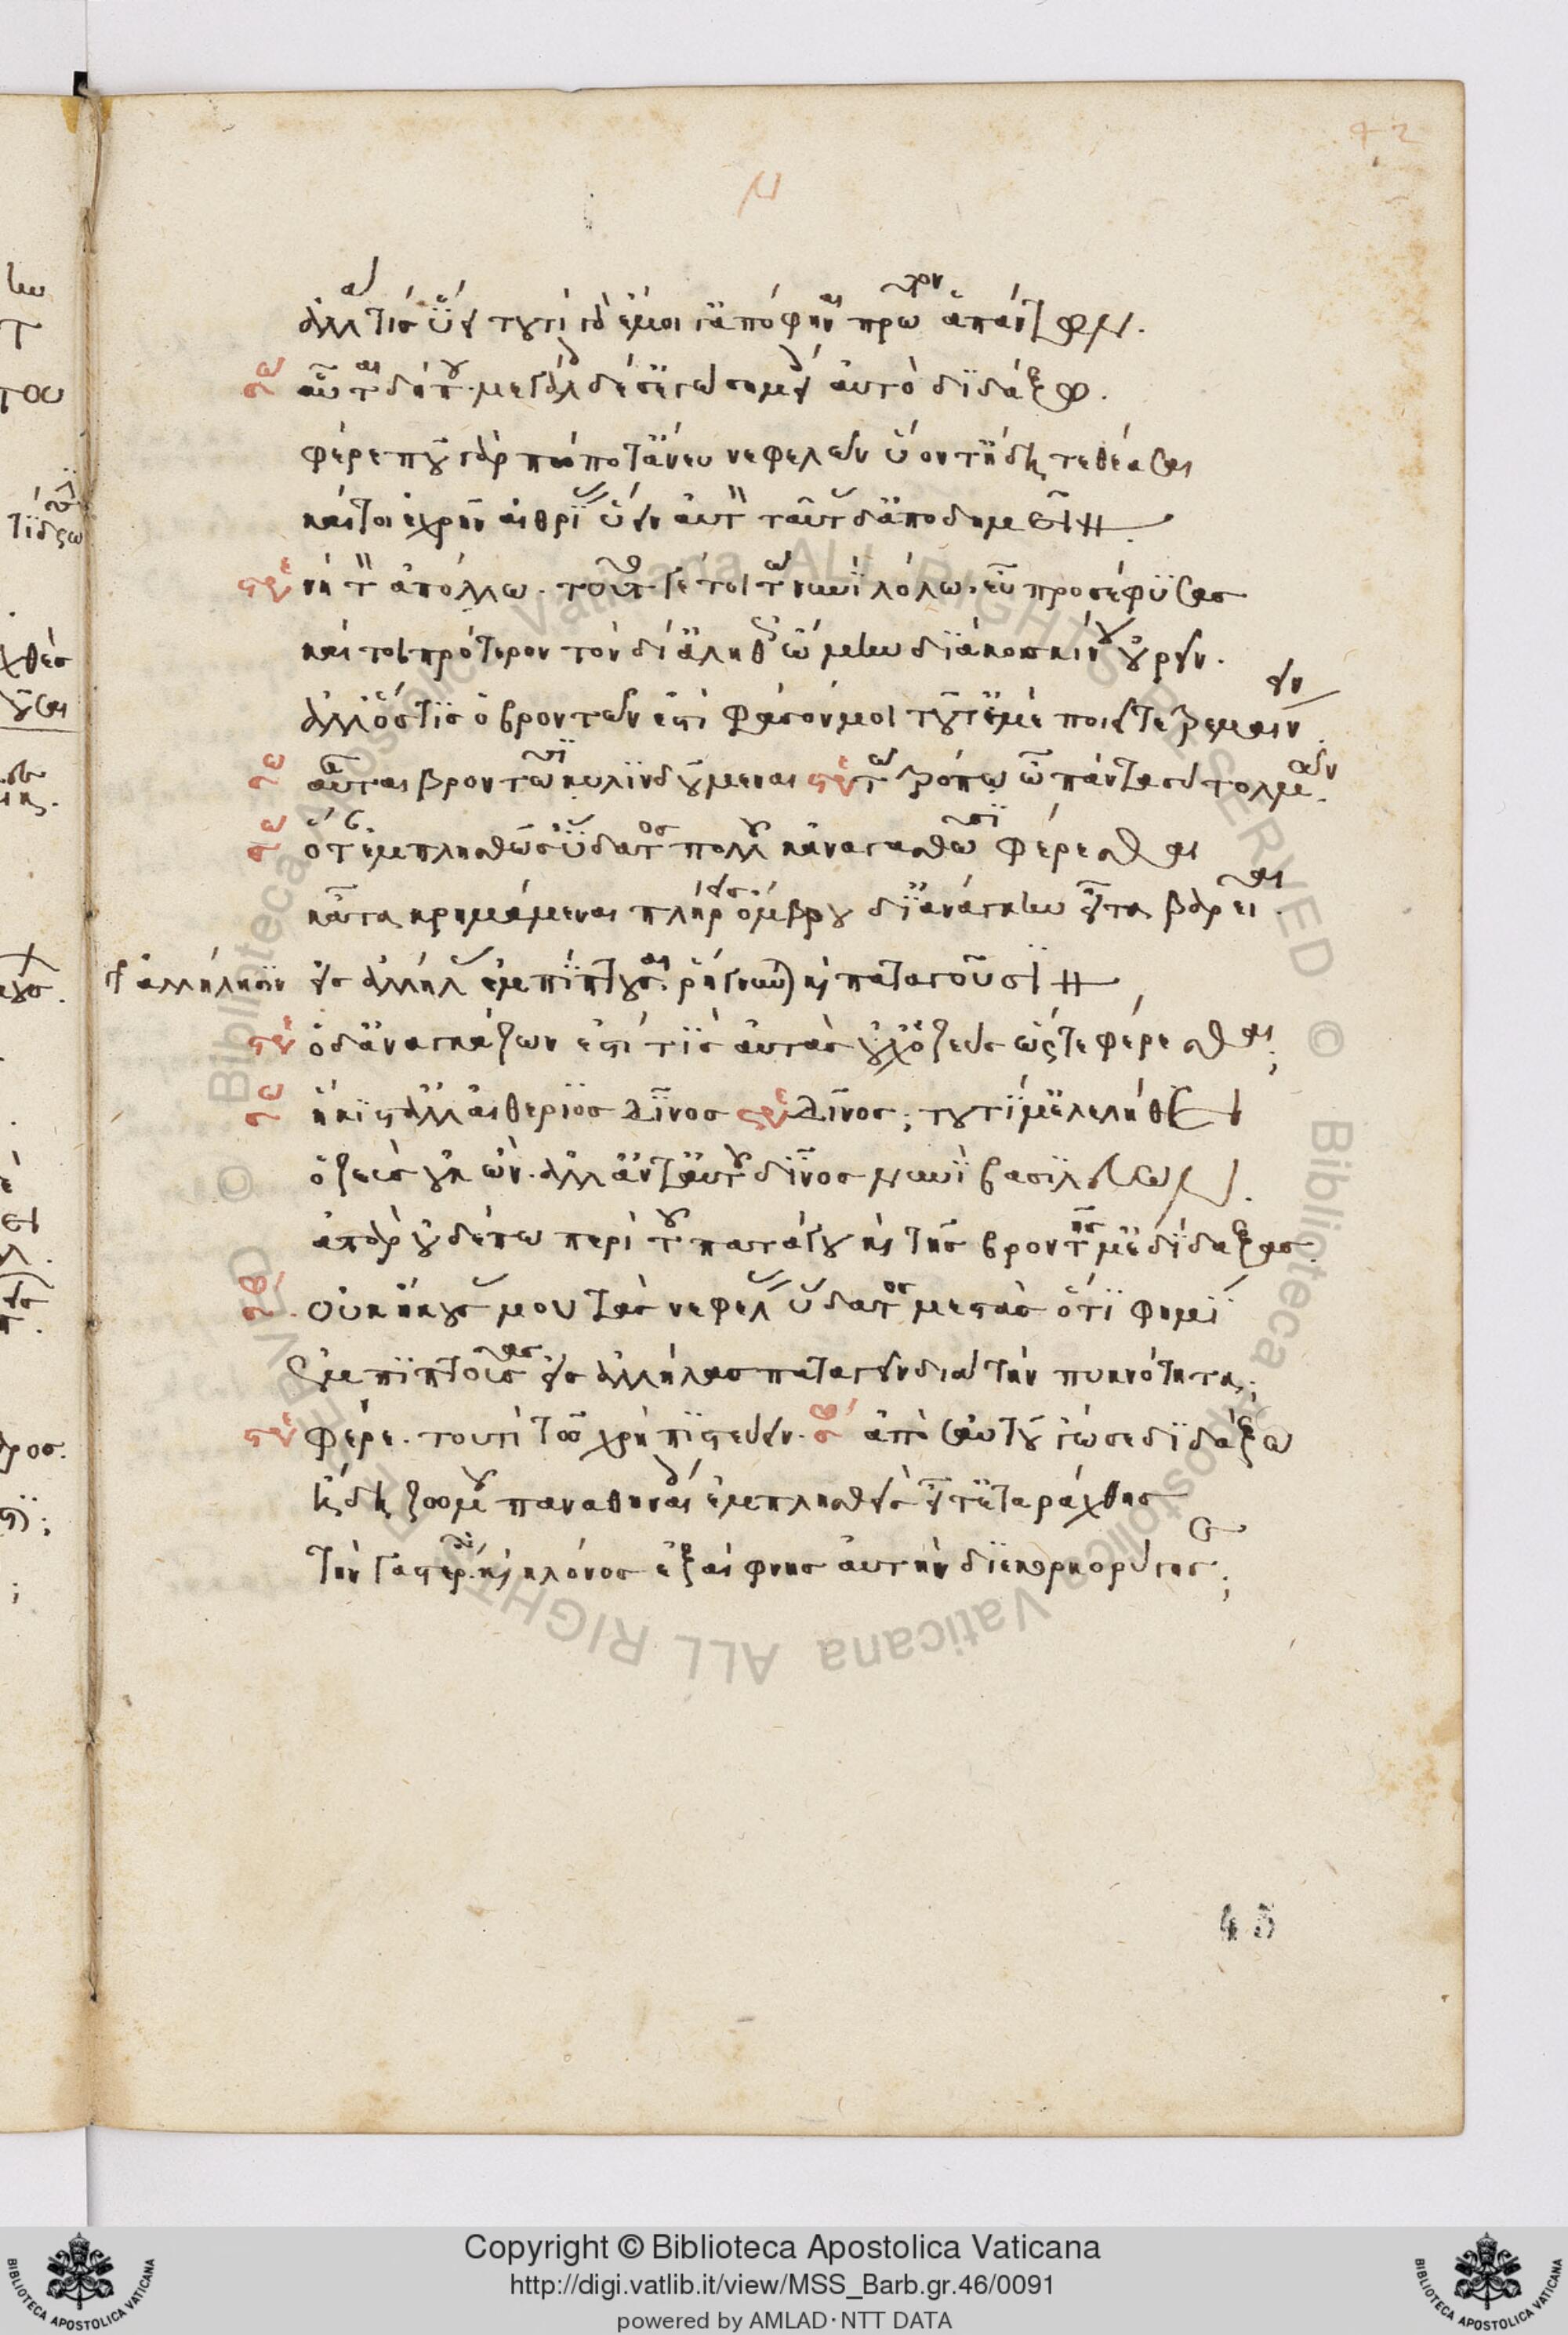 42
ἀλλὰ τίς ὕει τουτὶ γὰρ ἔμοιγ' ἀπόφηναι πρῶτον ἁπάντων.
σω αὗται δήπου. μεγάλοις δέ σ' ἐγὼ σημείοις αὐτὸ διδάξω.
φέρε ποῦ γὰρ πώποτ' ἄνευ νεφελῶν ὕοντ' ἤδη τεθέασαι
καίτοι ἐχρῆν αἰθρίας ὕειν αὐτὸν ταύτας δ' ἀποδημεῖν.
στρε νὴ τὸν ἀπόλλω. τοῦτό γέ τοι τῷ νυνὶ λόγω. εὖ προσέφυσας
καίτοι πρότερον τὸν δί' ἀληθῶς ὤμην διὰ κοσκίνου οὐρεῖν.
ἀλλ' ὅστις ὁ βροντῶν ἐστὶ φράσον μοι τοῦτ' ἐμὲ ποιεῖ τετρεμαίνειν.
σω αὗται βροντῶσι κυλινδούμεναι στρε τῷ τρόπω ὦ πάντα σὺ τολμῶν.
σω ὅταν ἐμπλησθῶσ' ὕδατος πολλοῦ κἀναγκασθῶσι φέρεσθαι
κατακρημνάμεναι πλήρεις ὄμβρου δι' ἀνάγκην εἶτα βαρεῖαι.
ἀλλήλησιν εἰς ἀλλήλας ἐμπίπτουσαι. ῥήγνυνται καὶ παταγοῦσιν
στρε ὁ δ' ἀναγκάζων ἐστὶ τίς αὐτὰς οὐχ' ὁ ζεὺς ὥστε φέρεσθαι;
σω ἥκιστ' ἀλλ' αἰθέριος δῖνος στρε δῖνος; τουτί μ' ἐλελήθει
ὁ ζεὺς οὐκ ὤν. ἀλλ' ἀντ' αὐτοῦ δῖνος νυνὶ βασιλεύων.
ἀτὰρ οὐδέπω περὶ τοῦ πατάγου καὶ τῆς βροντῆς μ' ἐδίδαξας.
σω. οὐκ ἤκουσάς μου τὰς νεφέλας ὕδατος μεστὰς ὅτι φημὶ
ἐμπιπτούσας εἰς ἀλλήλας παταγεῖν διὰ τὴν πυκνότητα;
στρε φέρε. τουτὶ τῶ χρὴ πιστεύειν. σω ἀπὸ σαυτοῦ 'γώ σε διδάξω
ἤδη ζωμοῦ παναθηναίοις ἐμπλησθεὶς εἶτ' ἐταράχθης
τὴν γαστέρα. καὶ κλόνος ἐξαίφνης αὐτὴν διεκορκορύγησε;
45
Copyright © Biblioteca Apostolica Vaticana
http://digi.vatlib.it/view/MSS_Barb.gr.46/0091
powered by AMLAD · NTT DATA